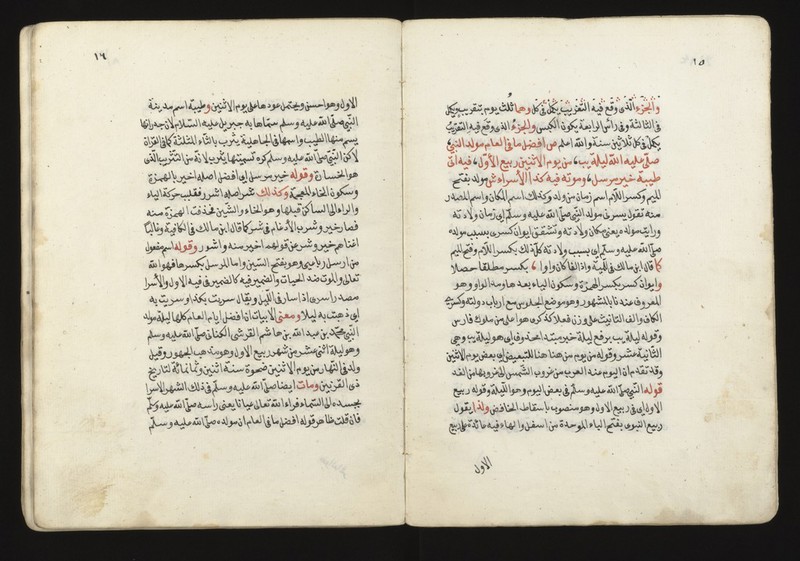 ١٥
والجزء الذى وقع فيه التغريب يكمل فى كل وهما ثلث يوم بتقريب يكمل
فى الثالثة وفى راس الرابعة يكون الكبس والجزء الذى وقع فيه التقريب
يكمل فى كل ثلاثين سنة والله اعلم من افضل ما فى العام مولد النبى
صلى عليه الله ليلة يب، من يوم الاثنين ربيع الاول، فيه اتى
طيبة خير مرسل، وموته فيه كذا الاسراء ش مولد بفتح
الميم وكسر اللام اسم زمان من ولد وكذلك اسم المكان واسم المصدر
منه تقول يسرنى مولد النبى صلى الله عليه وسلم اى زمان ولادته
ورايت مولده يعنى مكان ولادته وتشقق ايوان كسرى بسبب مولده
صلى الله عليه وسلم اى بسبب ولادته كل ذلك بكسر اللام وفتح الميم
كما قال ابن مالك فى اللامية واذا الفا كان واوا، بكسر مطلقا حصلا
وايوان كسر بكسر الهمزة وسكون الياء بعدها ومد الواو وهو
المعروف عندنا بالمشهور وهو موضع الجلوس مع ارباب دولته وكسرى بكسر
الكاف والف التانيث على وزن فعلا كذكرى هو اسم ملك من ملوك فارس
وقوله ليلة يب برفع ليلة خبر مبتدا محذوف اى هو ليلة يب وهى
الثانية عشر وقوله من يوم من هنا هنا للتبعيض اى بعض يوم الاثنين
وقد تقدم ان اليوم عند العرب من غروب الشمس الى غروبها من الغد
قوله النبى صلى الله عليه وسلم فى بعض اليوم وهو الليلة وقوله ربيع
الاول اى فى ربيع الاول وهو منصوب باسقاط الخافض ولذا يقول
ربيع النبوى بفتح الباء الموحدة من اسفل والهاء فيه عائدة على ربيع
الاول
١٦
الاول وهو احسن ويحتمل عودها على يوم الاثنين وطيبة اسم مدينة
النبى صلى الله عليه وسلم سماها به جبريل عليه السلام لان جدرانها
يسم منها الطيب واسمها فى الجاهلية يثرب بالثاء المثلثة كما فى القران
لاكن النبى صلى الله عليه وسلم كره تسميتها يثرب لانه من التثريب الذى
هو الخسارة وقوله خير مرسل اى افضل اصله اخير بالهمزة
وسكون الخاء المعجمة وكذلك شر اصله اشرر فقلب حركة الياء
والراء الى الساكن قبلها وهو الخاء والشين فحذفت الهمزة منه
فصار خير وشر بالادغام فى شر كما قال ابن مالك فى الكافية وغالبا
اغناهم خير وشر عن قولهم اخير منه واشر وقوله اسم مفعول
من ارسل رباعى وهو بفتح السين واما المرسل بكسرها فهو الله
تعالى والموت ضد الحيات والضمير فيه كالضمير فى فيه الاول والاسرا
مصدر اسرى اذا سار فى الليل ويقال سريت بكذا واسريت به
اى ذهبت به ليلا ومعنى الابيات ان افضل ايام العام كلها ليلة مولد
النبى محمد بن عبد الله بن هاشم القرشى الكنانى صلى الله عليه وسلم
وهو ليلة اثنى عشر من شهر ربيع الاول وهو مذهب الجمهور وقيل
ولد فى النهار من يوم الاثنين ضحوة سنة اثنين وثمانمائة لتاريخ
ذى القرنين ومات ايضا صلى الله عليه وسلم فى ذلك الشهر الاسرا
بجسده الى السماء فراء الله تعالى عيانا يعنى راسه صلى الله عليه وسلم
فان قلت ظاهر قوله افضل ما فى العام ان مولده صلى الله عليه وسلم